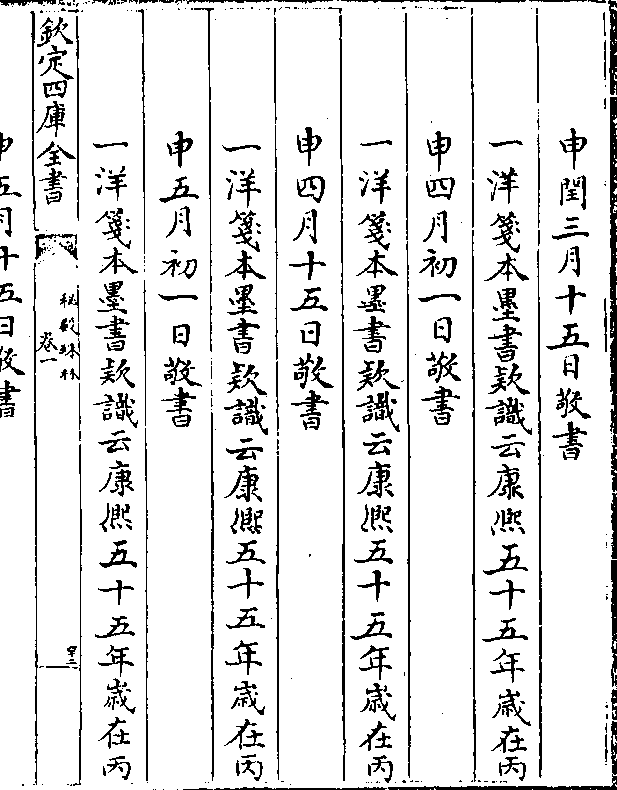 申閏三月十五日敬書
一洋箋本墨書款識云康熙五十五年歲在丙
申四月初一日敬書
一洋箋本墨書款識云康熙五十五年歲在丙
申四月十五日敬書
一洋箋本墨書款識云康熙五十五年歲在丙
申五月初一日敬書
一洋箋本墨書款識云康熙五十五年歲在丙
欽定四庫全書
秘殿珠林
卷一
四十二
申五月十五日敬書